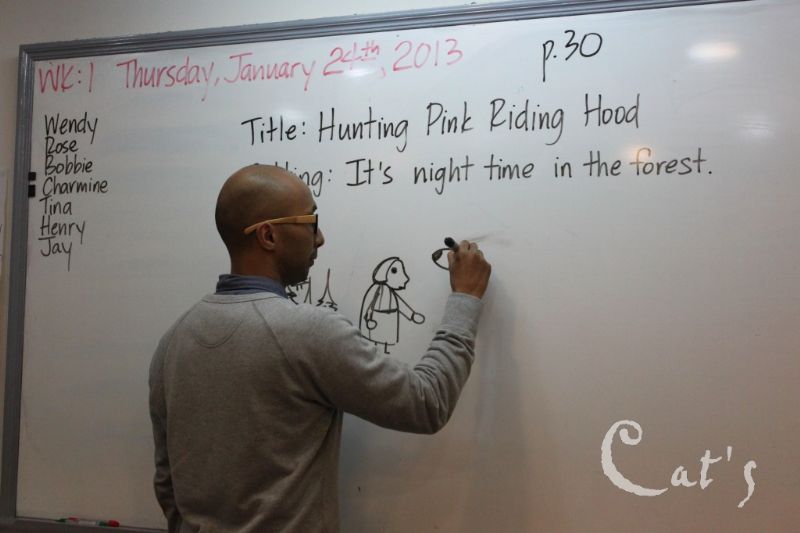 WK:1 Thursday, January 24th, 2013
p.30
Wendy
Rose
Bobbie
Charmine
Tina
Henry
Jay
Title: Hunting Pink Riding Hood
It's night time in the forest.
Cat's